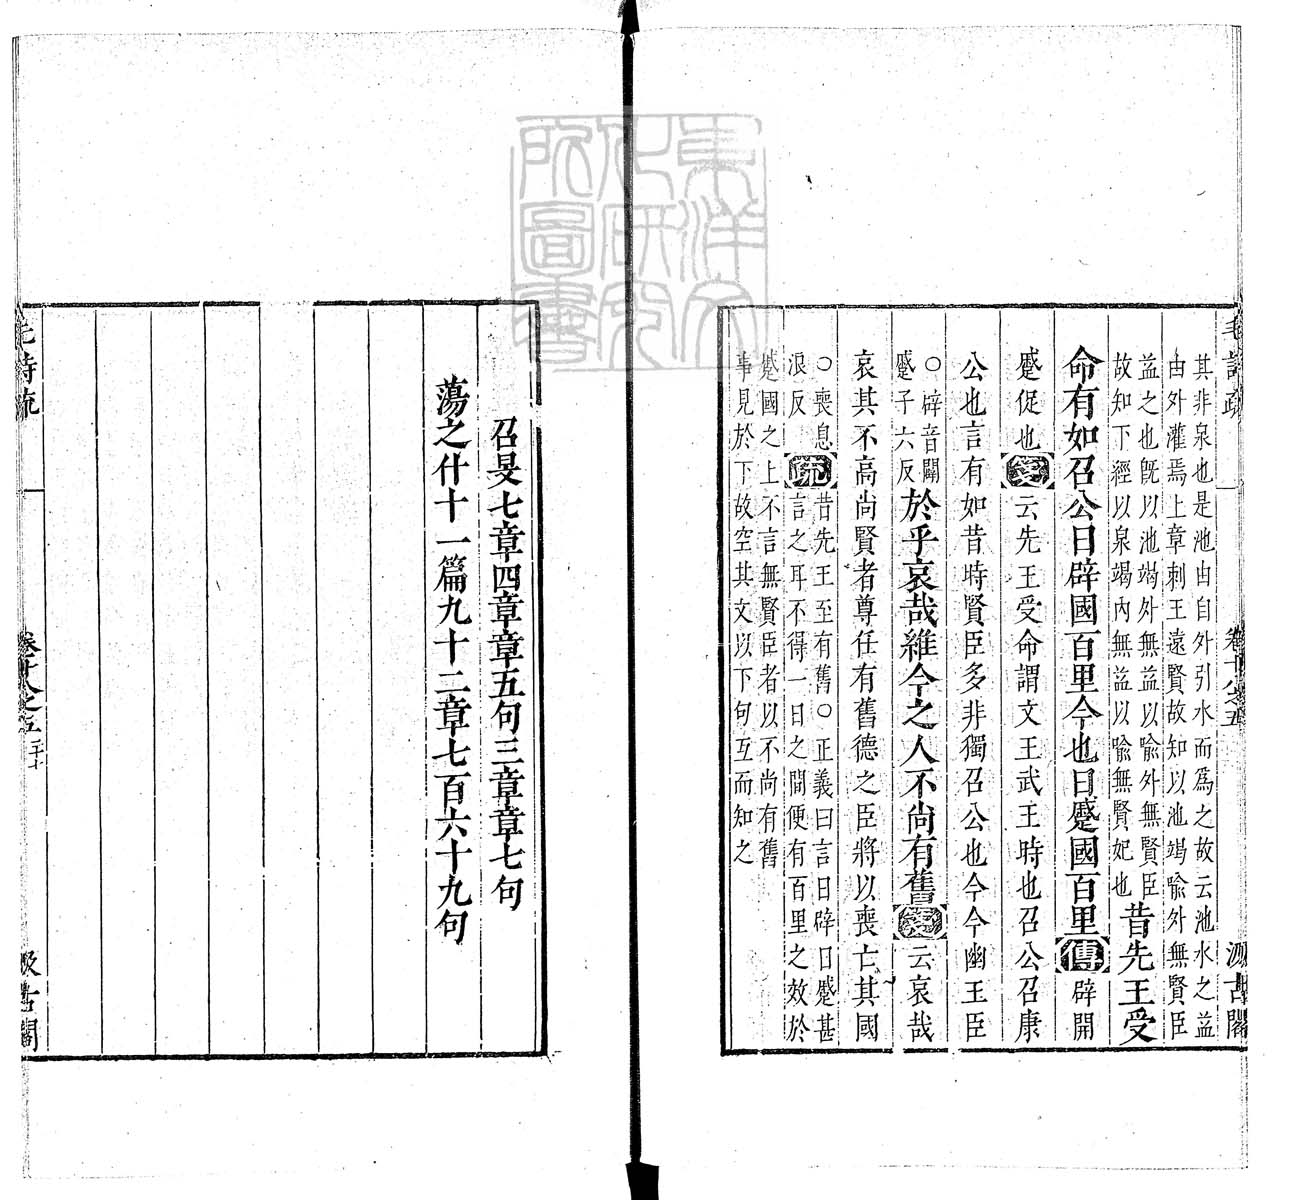 毛詩疏 卷十八之五 汲古閣
其非泉也是池由自外引水而爲之故云池水之益
由外灌焉上章刺王遠賢故知以池竭喻外無賢臣
益之也旣以池竭外無益以喻外無賢臣
故知下經以泉竭內無益以喻無賢妃也
昔先王受
命有如召公日辟國百里今也日蹙國百里傳辟開
蹙促也箋云先王受命謂文王武王時也召公召康
公也言有如昔時賢臣多非獨召公也今今幽王臣
○辟音闢
蹙子六反
於乎哀哉維今之人不尚有舊箋云哀哉
哀其不高尚賢者尊任有舊德之臣將以喪亡其國
○喪息
浪反
疏
昔先王至有舊○正義曰言日辟日蹙甚
言之耳不得一日之間便有百里之效於
蹙國之上不言無賢臣者以不尚有舊
事見於下故空其文以下句互而知之
東洋文
化研究
所圖書
召旻七章四章章五句三章章七句
蕩之什十一篇九十二章七百六十九句
毛詩疏 卷十八之五 汲古閣